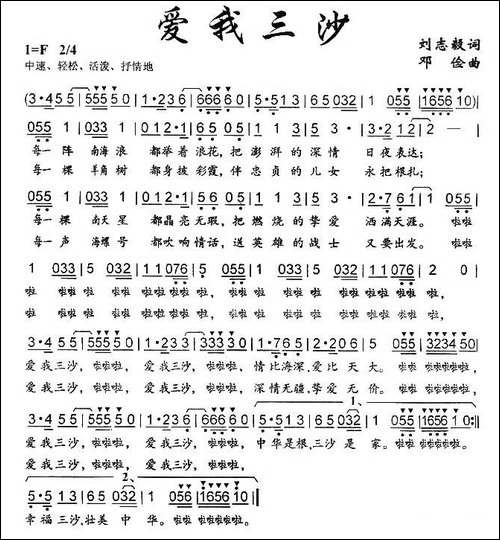 爱我三沙
1=F 2/4
刘志毅词
中速、轻松、活泼、抒情地
邓俭曲
(3·4 5 5 | 555 5 0 | 1·2 3 6 | 666 6 0 | 5·5 1 3 | 6 5 032 | 1 055 | 1656 1 0)
055 1 | 033 1 | 012·1 | 6·5 5 | 0 5·1 | 3 5 3· | 3·2 1 2 | 2 — |
每一 阵 南海 浪 都举着 浪花,把 澎湃的 深情 日夜表达;
每一 棵 羊角 树 都身披 彩霞,伴 忠贞的 儿女 永把根扎;
055 1 | 033 1 | 012·1 | 6·5 5 | 0 5·1 | 3 5 3· | 2·7 6 1 | 1 055 |
每一 棵 南天 星 都晶亮 无瑕,把 燃烧的 挚爱 洒满天涯。 啦啦
每一 声 海螺 号 都吹响 情话,送 英雄的 战士 又要出发。 啦啦
1 033 | 5 032 | 1 1 076 | 5 055 | 1 033 | 5 032 | 1 1 076 | 2 0 |
啦 啦啦 啦 啦啦 啦啦啦啦, 啦 啦啦 啦 啦啦 啦 啦啦 啦啦啦啦 啦,
啦 啦啦 啦 啦啦 啦啦啦啦, 啦 啦啦 啦 啦啦 啦 啦啦 啦啦啦啦 啦,
3·4 5 5 | 555 5 0 | 1·2 3 3 | 333 3 0 | 6·6 5 6 | 5 3 032 | 5 055 | 3234 5 0 |
爱我三沙, 啦啦啦, 爱我三沙, 啦啦啦, 情比海深,爱比天大。 啦啦 啦啦啦啦啦,
爱我三沙, 啦啦啦, 爱我三沙, 啦啦啦, 深情无疆,挚爱无价。 啦啦 啦啦啦啦啦,
1、
3·4 5 5 | 555 5 0 | 1·2 3 6 | 666 6 0 | 5·5 1 3 | 6 5 032 | 1 055 | 1656 1 0 :||
爱我三沙, 啦啦啦, 爱我三沙, 啦啦啦, 中华是根,三沙是 家。 啦啦 啦啦啦啦啦。
爱我三沙, 啦啦啦, 爱我三沙, 啦啦啦,
2、
5·5 1 3 | 6 5 032 | 1 056 | 1656 1 0 ||
幸福三沙,壮美中 华。 啦啦 啦啦啦啦啦。